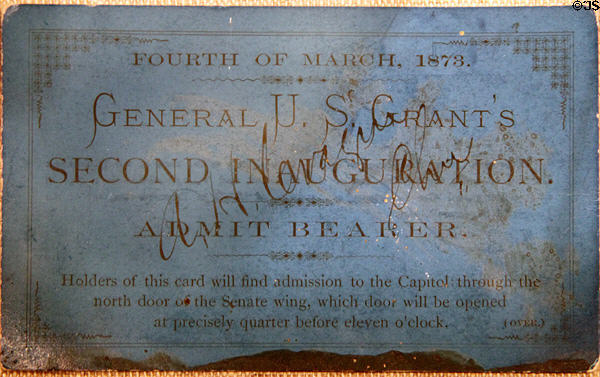 ©JS
FOURTH OF MARCH, 1873.
GENERAL U. S. GRANT'S
SECOND INAUGURATION.
ADMIT BEARER.
Holders of this card will find admission to the Capitol through the
north door of the Senate wing, which door will be opened
at precisely quarter before eleven o'clock.
(OVER.)